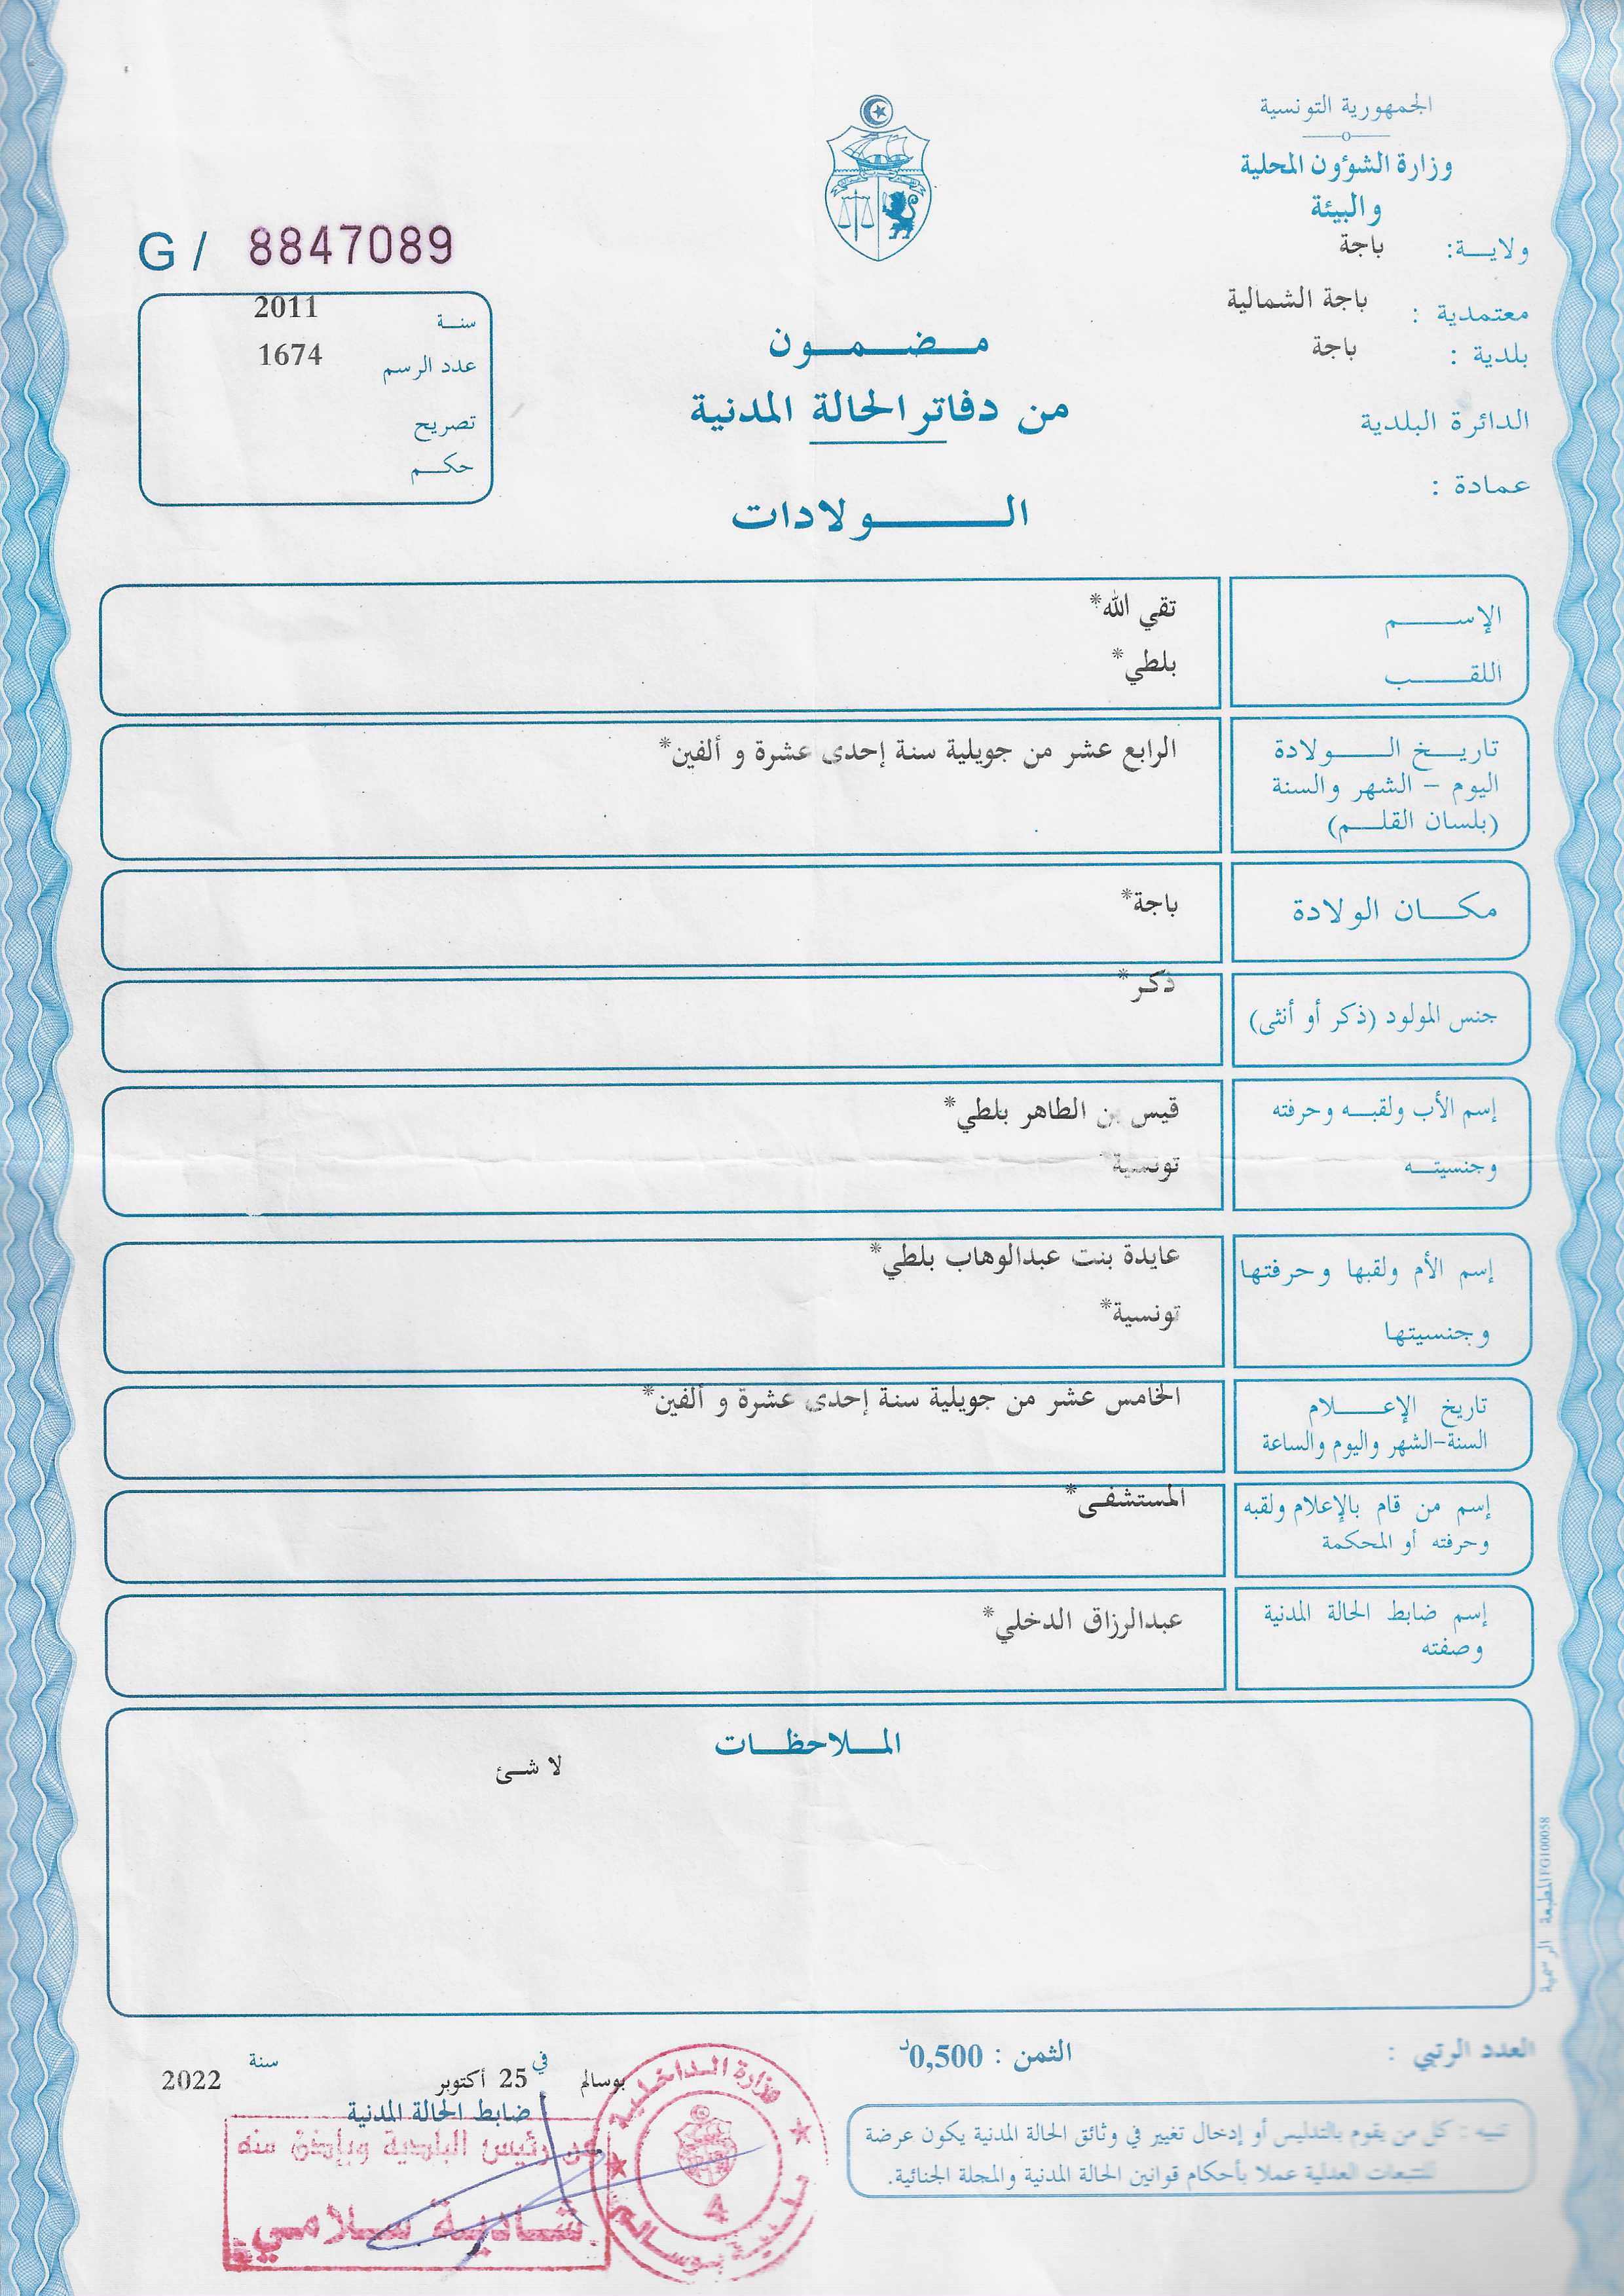 الجمهورية التونسية
وزارة الشؤون المحلية
والبيئة
ولاية: باجة
معتمدية : باجة الشمالية
بلدية : باجة
الدائرة البلدية
عمادة :
G / 8847089
سنة 2011
عدد الرسم 1674
تصريح
حكم
مضمون
من دفاتر الحالة المدنية
الولادات
الإسم تقي الله*
اللقب بلطي*
تاريخ الولادة الرابع عشر من جويلية سنة إحدى عشرة و ألفين*
اليوم - الشهر والسنة
(بلسان القلم)
مكان الولادة باجة*
جنس المولود (ذكر أو أنثى) ذكر*
إسم الأب ولقبه وحرفته قيس بن الطاهر بلطي*
وجنسيته تونسية*
إسم الأم ولقبها وحرفتها عايدة بنت عبدالوهاب بلطي*
وجنسيتها تونسية*
تاريخ الإعلام الخامس عشر من جويلية سنة إحدى عشرة و ألفين*
السنة-الشهر واليوم والساعة
إسم من قام بالإعلام ولقبه المستشفى*
وحرفته أو المحكمة
إسم ضابط الحالة المدنية عبدالرزاق الدخلي*
وصفته
الملاحظات
لا شئ
المطبعة الرسمية FG100058
العدد الرتبي :
الثمن : 0,500د
بوسالم في 25 أكتوبر سنة 2022
ضابط الحالة المدنية
عن رئيس البلدية وبإذن منه
شادية سلامي
وزارة الداخلية
4
بلدية بوسالم
تنبيه : كل من يقوم بالتدليس أو إدخال تغيير في وثائق الحالة المدنية يكون عرضة
للتتبعات العدلية عملا بأحكام قوانين الحالة المدنية والمجلة الجنائية.